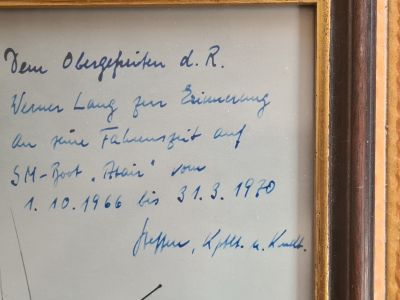 Dem Obergefreiten d. R.
Werner Lang zur Erinnerung
an seine Fahrenszeit auf
SM-Boot „Atair" vom
1. 10. 1966 bis 31. 3. 1970
Steffen, Kptlt. u. Kmdt.